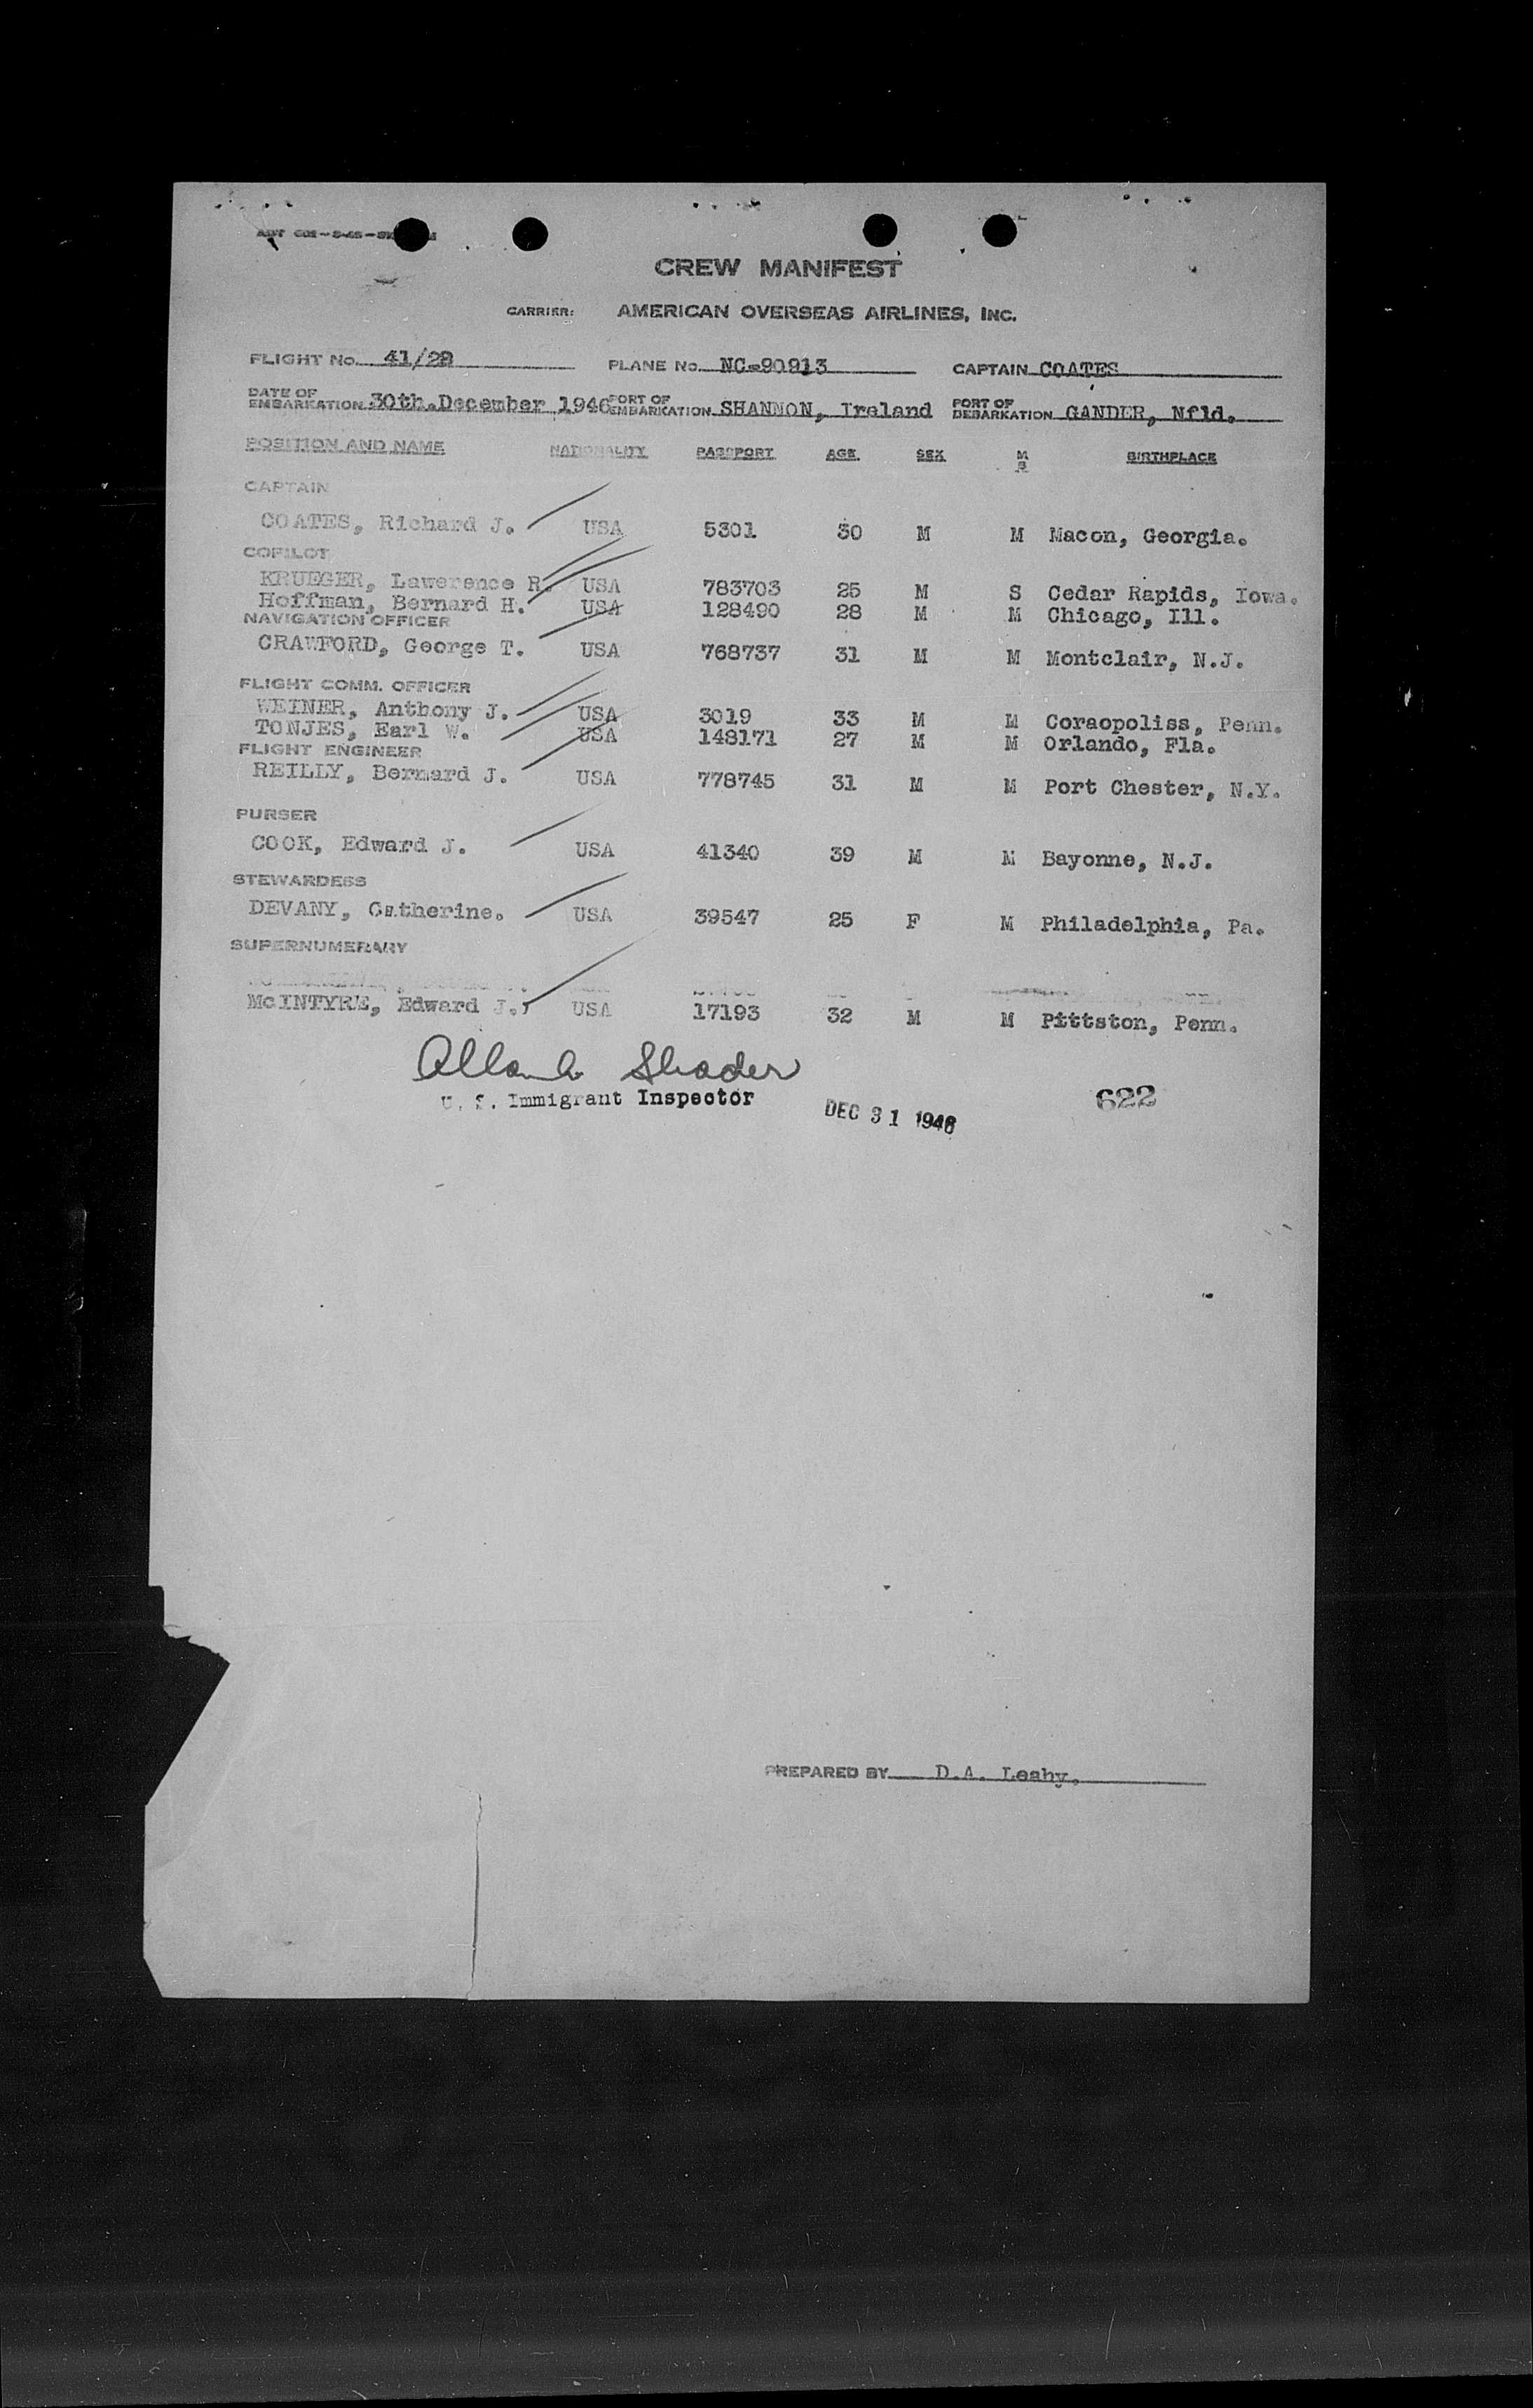 CREW MANIFEST
CARRIER: AMERICAN OVERSEAS AIRLINES, INC.
FLIGHT No. 41/28 PLANE No. NC-90913 CAPTAIN COATES
DATE OF EMBARKATION 30th.December 1946 PORT OF EMBARKATION SHANNON, Ireland PORT OF DEBARKATION GANDER, Nfld.
POSITION AND NAME NATIONALITY PASSPORT AGE SEX M S BIRTHPLACE
CAPTAIN
COATES, Richard J. USA 5301 30 M M Macon, Georgia.
COPILOT
KRUEGER, Lawerence R. USA 783703 25 M S Cedar Rapids, Iowa.
Hoffman, Bernard H. USA 128490 28 M M Chicago, Ill.
NAVIGATION OFFICER
CRAWFORD, George T. USA 768737 31 M M Montclair, N.J.
FLIGHT COMM. OFFICER
WEINER, Anthony J. USA 3019 33 M M Coraopoliss, Penn.
TONJES, Earl W. USA 148171 27 M M Orlando, Fla.
FLIGHT ENGINEER
REILLY, Bernard J. USA 778745 31 M M Port Chester, N.Y.
PURSER
COOK, Edward J. USA 41340 39 M M Bayonne, N.J.
STEWARDESS
DEVANY, Catherine. USA 39547 25 F M Philadelphia, Pa.
SUPERNUMERARY
McINTYRE, Edward J. USA 17193 32 M M Pittston, Penn.
Shader
U. S. Immigrant Inspector DEC 31 1946 622
PREPARED BY D.A. Leahy.